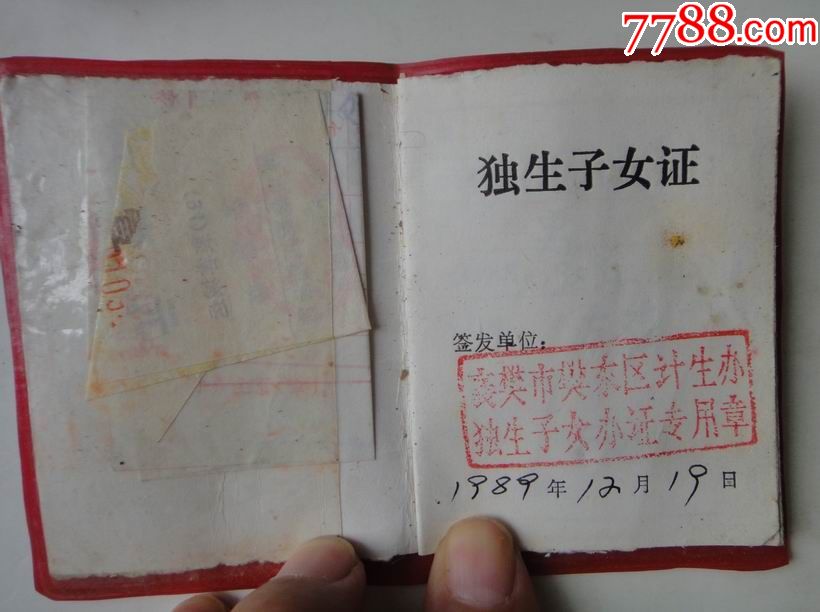 7788.com
独生子女证
签发单位：
襄樊市樊东区计生办
独生子女办证专用章
1989年12月19日